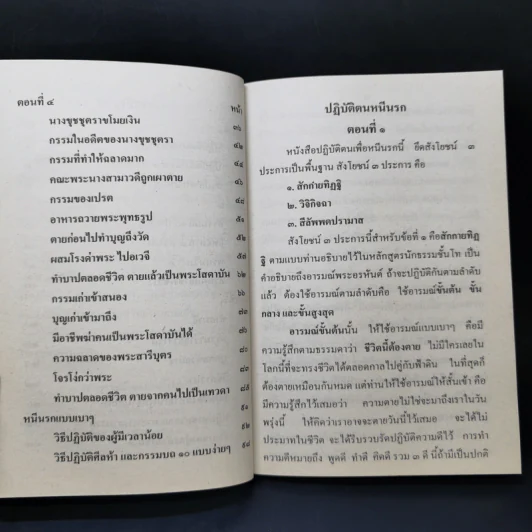 ตอนที่ ๔
หน้า
นางขุชชุตราขโมยเงิน ๓๖
กรรมในอดีตของนางขุชชุตรา ๔๒
กรรมที่ทำให้ฉลาดมาก ๔๔
คณะพระนางสามาวดีถูกเผาตาย ๔๖
กรรมของเปรต ๔๘
อาหารถวายพระพุทธรูป ๕๑
ตายก่อนไปทำบุญถึงวัด ๕๒
ผสมโรงด่าพระ ไปอเวจี ๕๙
ทำบาปตลอดชีวิต ตายแล้วเป็นพระโสดาบัน ๖๒
กรรมเก่าเข้าสนอง ๖๖
บุญเก่าเข้ามาถึง ๗๑
มีอาชีพฆ่าคนเป็นพระโสดาบันได้ ๗๓
ความฉลาดของพระสารีบุตร ๗๘
โจรโง่กว่าพระ ๘๓
ทำบาปตลอดชีวิต ตายจากคนไปเป็นเทวดา ๘๕
หนีนรกแบบเบาๆ ๙๑
วิธีปฏิบัติของผู้มีเวลาน้อย ๙๒
วิธีปฏิบัติศีลห้า และกรรมบถ ๑๐ แบบง่ายๆ ๙๕
ปฏิบัติตนหนีนรก
ตอนที่ ๑
หนังสือปฏิบัติตนเพื่อหนีนรกนี้ ยึดสังโยชน์ ๓
ประการเป็นพื้นฐาน สังโยชน์ ๓ ประการ คือ
๑. สักกายทิฏฐิ
๒. วิจิกิจฉา
๓. สีลัพพตปรามาส
สังโยชน์ ๓ ประการนี้สำหรับข้อที่ ๑ คือสักกายทิฏ
ฐิ ตามแบบท่านอธิบายไว้ในหลักสูตรนักธรรมชั้นโท เป็น
คำอธิบายถึงอารมณ์พระอรหันต์ ถ้าจะปฏิบัติกันตามลำดับ
แล้ว ต้องใช้อารมณ์ตามลำดับคือ ใช้อารมณ์ขั้นต้น ขั้น
กลาง และขั้นสูงสุด
อารมณ์ขั้นต้นนั้น ให้ใช้อารมณ์แบบเบาๆ คือมี
ความรู้สึกตามธรรมดาว่า ชีวิตนี้ต้องตาย ไม่มีใครเลยใน
โลกนี้ที่จะทรงชีวิตได้ตลอดกาลไปคู่กับฟ้าดิน ในที่สุดก็
ต้องตายเหมือนกันหมด แต่ท่านให้ใช้อารมณ์ให้สั้นเข้า คือ
มีความรู้สึกไว้เสมอว่า ความตายไม่ใช่จะมาถึงเราในวัน
พรุ่งนี้ ให้คิดว่าเราอาจจะตายวันนี้ไว้เสมอ จะได้ไม่
ประมาทในชีวิต จะได้รีบรวบรัดปฏิบัติความดีไว้ การทำ
ความดีหมายถึง พูดดี ทำดี คิดดี รวม ๓ ดี นี้ถ้ามีเป็นปกติ